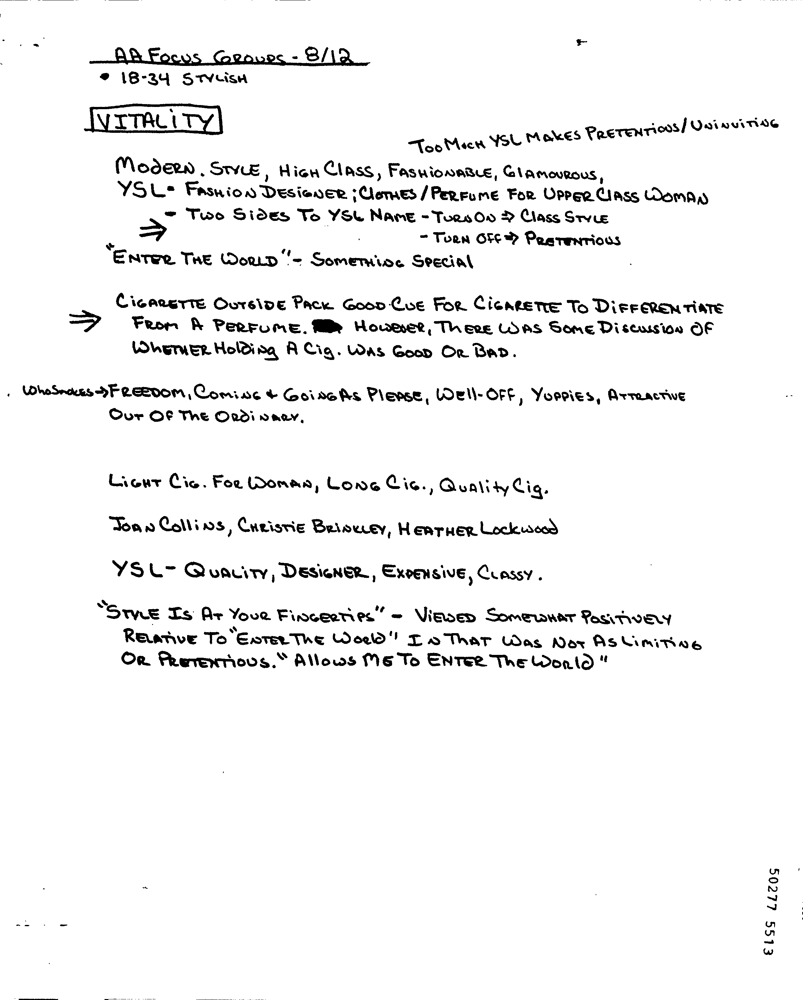 AA Focus Groups - 8/12
• 18-34 Stylish
VITALITY
Too Much YSL Makes Pretentious/Uninviting
Modern. Style, High Class, Fashionable, Glamourous,
YSL - Fashion Designer; Clothes/Perfume For Upper Class Woman
- Two Sides To YSL Name - Turn On ⇒ Class Style
⇒ - Turn Off ⇒ Pretentious
"Enter The World" - Something Special
Cigarette Outside Pack Good Cue For Cigarette To Differentiate
⇒ From A Perfume. However, There Was Some Discussion Of
Whether Holding A Cig. Was Good Or Bad.
Who Smokes → Freedom, Coming + Going As Please, Well-Off, Yuppies, Attractive
Out Of The Ordinary.
Light Cig. For Woman, Long Cig., Quality Cig.
Joan Collins, Christie Brinkley, Heather Lockwood
YSL - Quality, Designer, Expensive, Classy.
"Style Is At Your Fingertips" - Viewed Somewhat Positively
Relative To "Enter The World" In That Was Not As Limiting
Or Pretentious. "Allows Me To Enter The World"
50277 5513